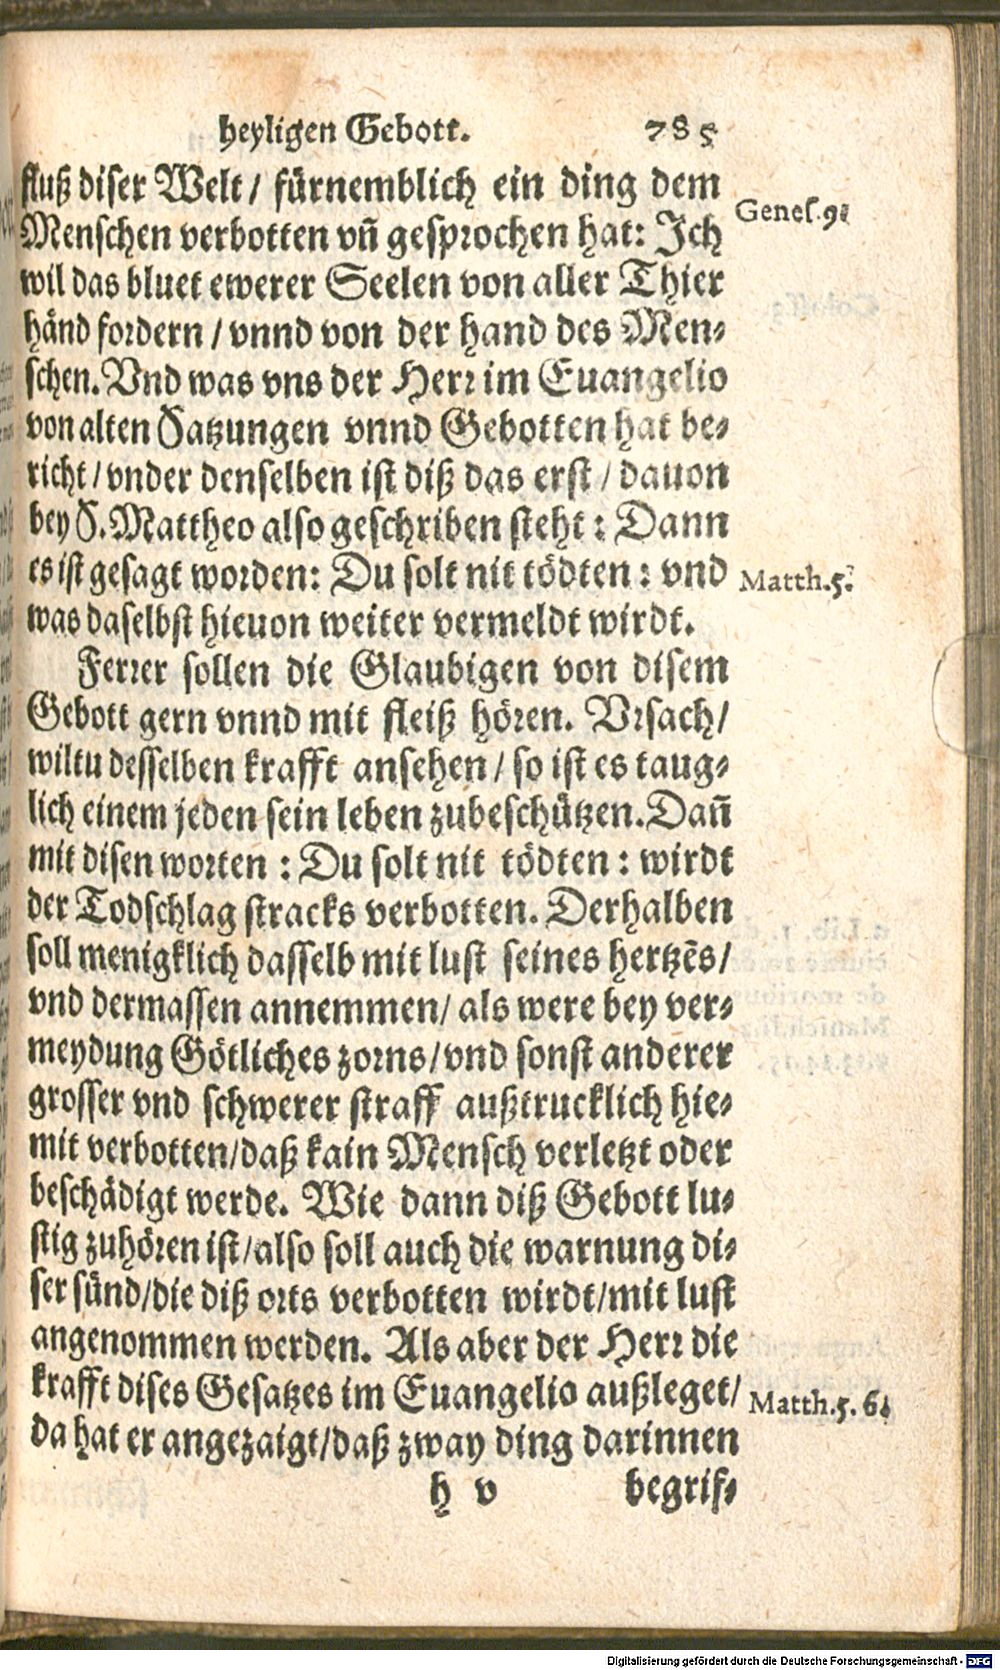 heyligen Gebott. 785
fluß diser Welt/ fürnemblich ein ding dem
Genes.9.
Menschen verbotten vñ gesprochen hat: Ich
wil das bluet ewerer Seelen von aller Thier
händ fordern / vnnd von der hand des Men-
schen. Vnd was vns der Herr im Euangelio
von alten Satzungen vnnd Gebotten hat be-
richt / vnder denselben ist diß das erst / dauon
bey S. Mattheo also geschriben steht: Dann
es ist gesagt worden: Du solt nit tödten: vnd
Matth.5.
was daselbst hieuon weiter vermeldt wirdt.
Ferrer sollen die Glaubigen von disem
Gebott gern vnnd mit fleiß hören. Vrsach/
wiltu desselben krafft ansehen / so ist es taug-
lich einem jeden sein leben zubeschützen. Dañ
mit disen worten: Du solt nit tödten: wirdt
der Todschlag stracks verbotten. Derhalben
soll menigklich dasselb mit lust seines hertzẽs/
vnd dermassen annemmen/ als were bey ver-
meydung Götliches zorns/vnd sonst anderer
grosser vnd schwerer straff außtrucklich hie-
mit verbotten/daß kain Mensch verletzt oder
beschädigt werde. Wie dann diß Gebott lu-
stig zuhören ist/also soll auch die warnung di-
ser sünd/die diß orts verbotten wirdt/mit lust
angenommen werden. Als aber der Herr die
krafft dises Gesatzes im Euangelio außleget/
Matth.5. 6.
da hat er angezaigt/daß zway ding darinnen
h v begrif-
Digitalisierung gefördert durch die Deutsche Forschungsgemeinschaft - DFG